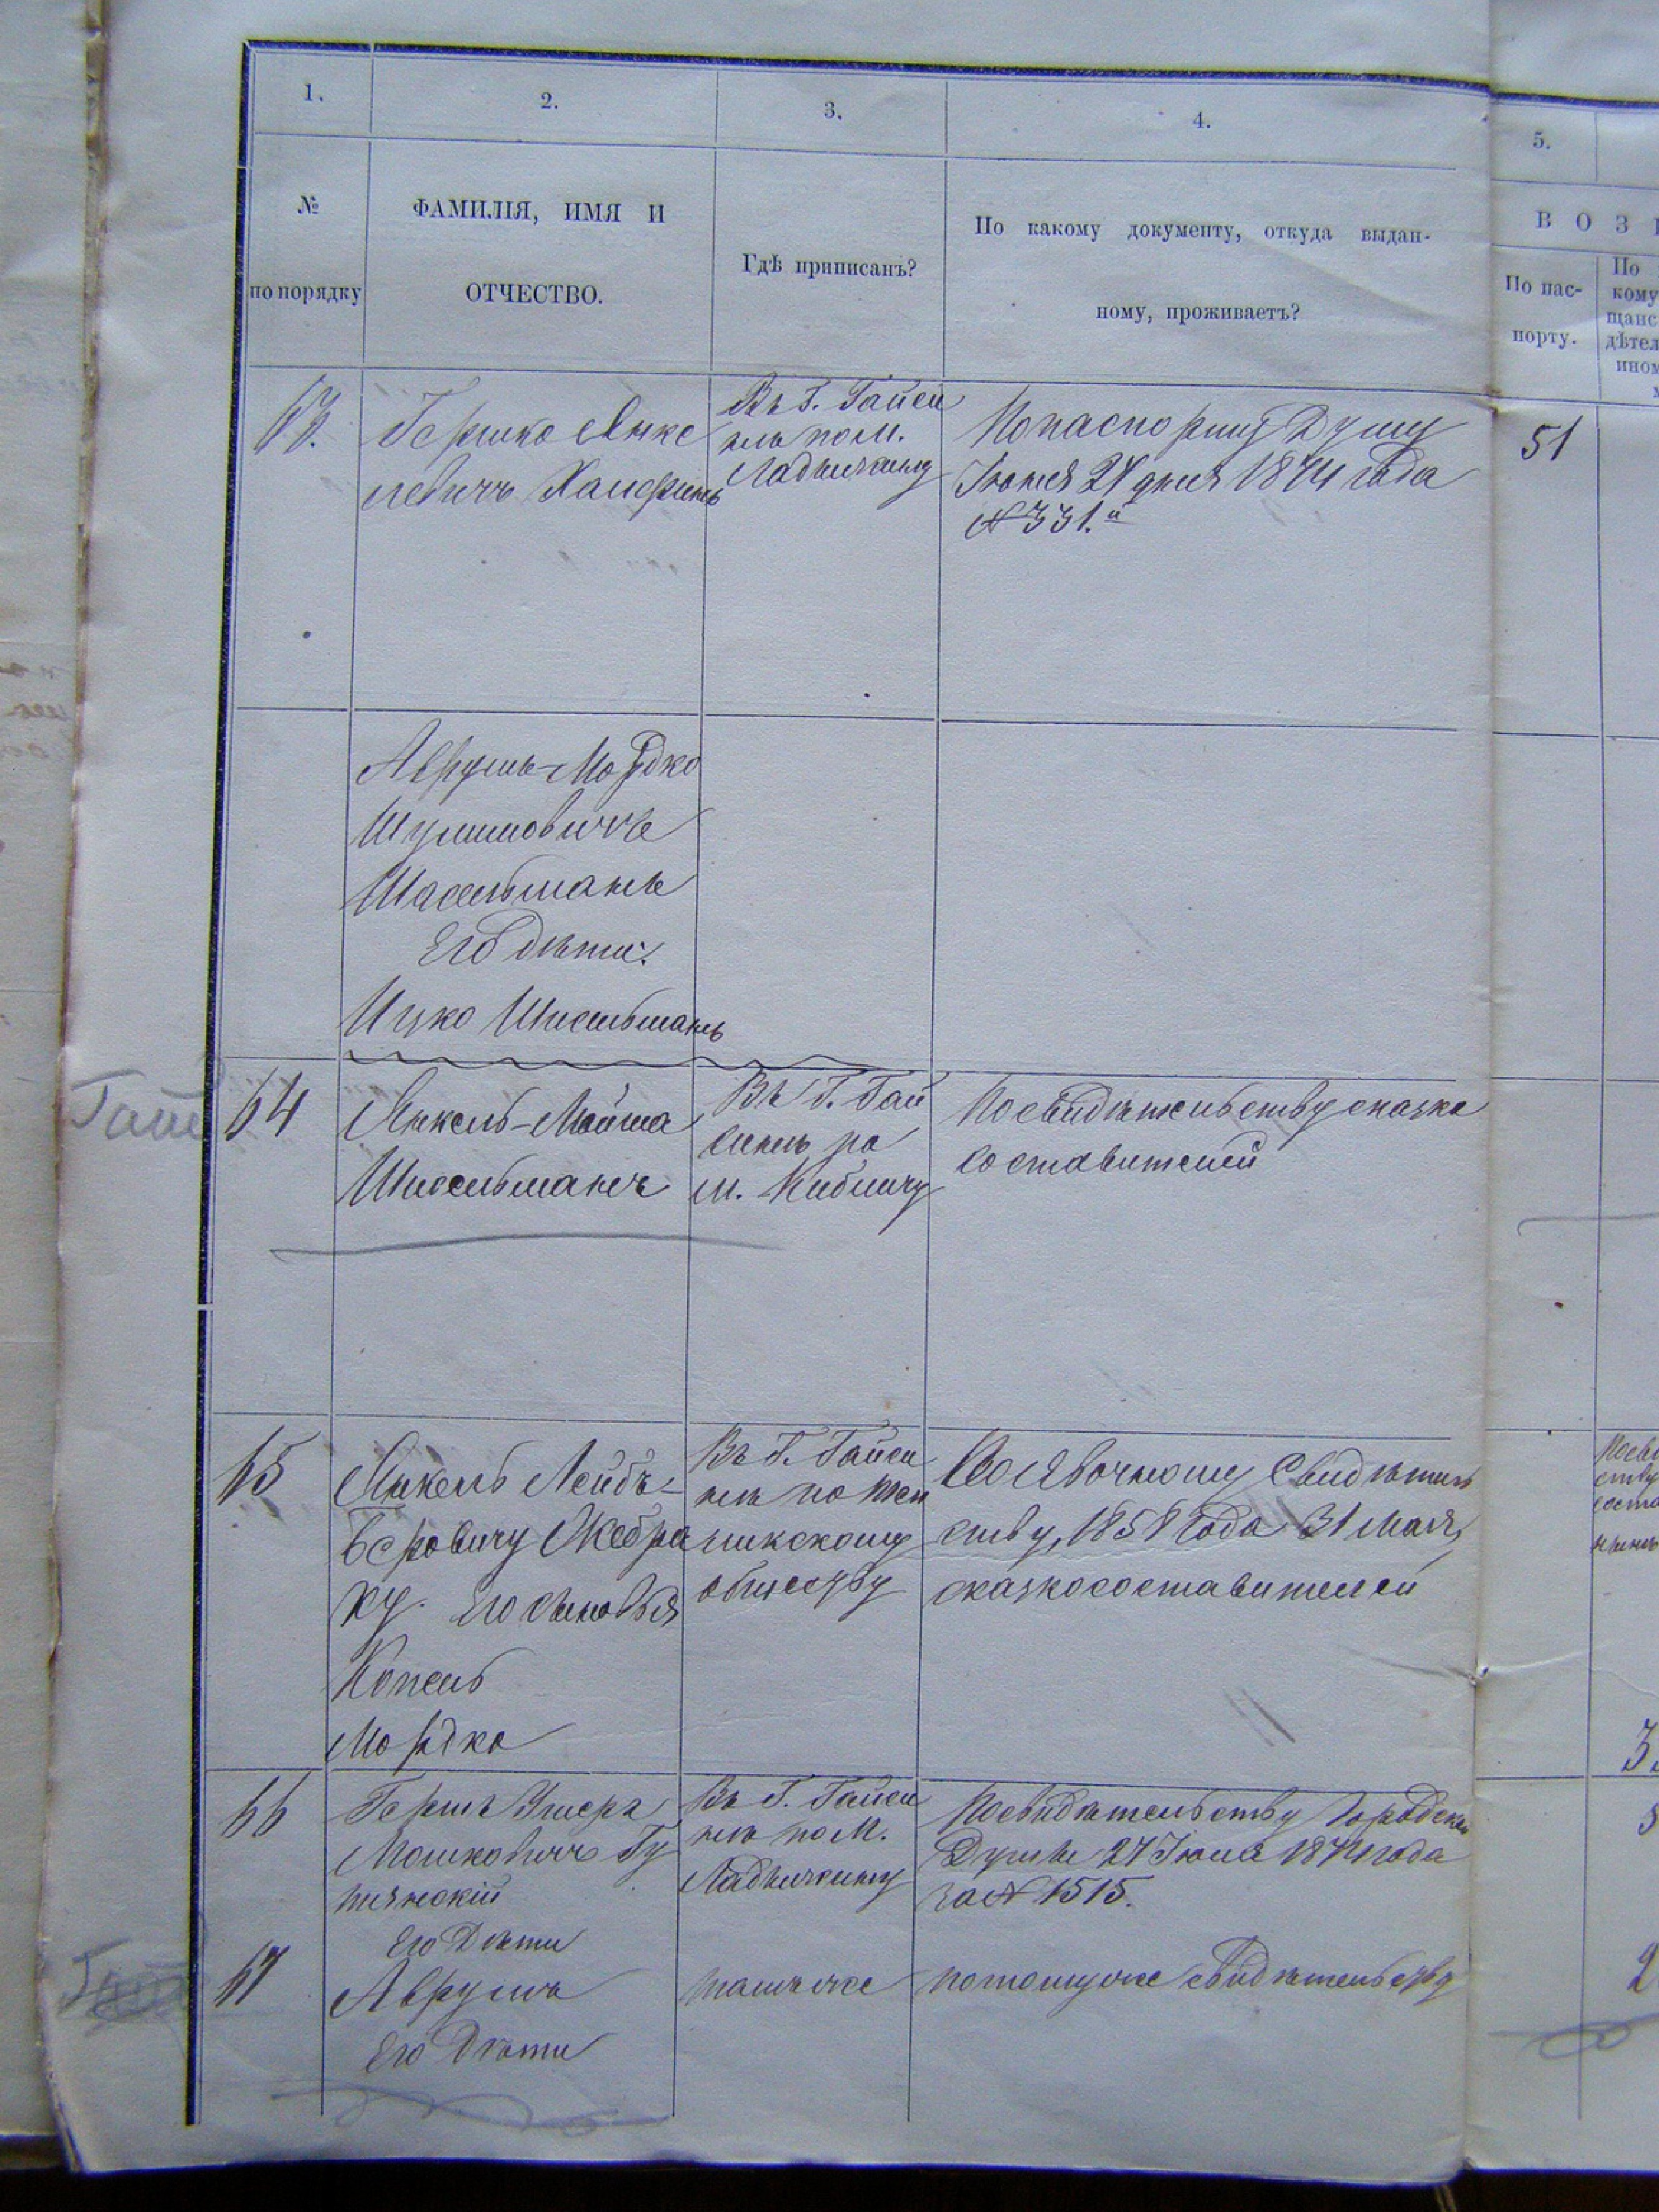 1.
2.
3.
4.
5.
№
по порядку
ФАМИЛІЯ, ИМЯ И
ОТЧЕСТВО.
Гдѣ приписанъ?
По какому документу, откуда выдан-
ному, проживаетъ?
В О З
По пас-
порту.
По
кому
щанс
дѣтел
ином
63.
Гершко Янке
левичъ
Въ Г. Гайси
нѣ по м.
Ладыжину
По паспорту Думы
Іюня 27 дня 1874 года
№ 331.й
51
Аврумъ-Мордко
Шулимовичъ
Шасельманъ
Его дѣти:
Ицко Шисельманъ
Гай
64
Янкель-Мойша
Шисельманъ
Въ Г. Гай
синѣ по
м. Кибличу
По свидѣтельству сказко
составителей
65
Янкель Лейбъ-
Беровичу Жебра
ку. Его сыновья
Копель
Мордко
Въ Г. Гайси
нѣ по
обществу
По явочному свидѣтель
ству, 1858 года 31 мая,
сказкосоставителей
66
Гершъ Ушеръ
Мошковичъ Гу
тянскій
Его Дѣти
Въ Г. Гайси
нѣ по М.
Ладыжину
По свидѣтельству Городской
Думы 27 Іюня 1874 года
за № 1515.
67
Аврумъ
Его Дѣти
тамъ же
по тому же свидѣтельству
2